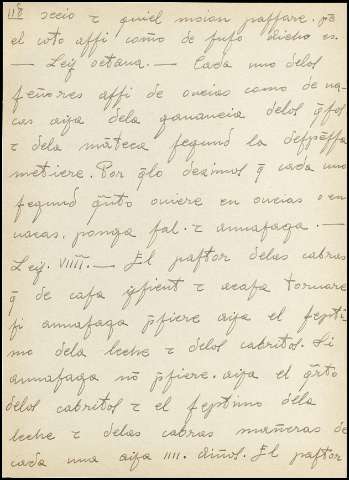 118
seeio τ quiel mosan paffare. pa
el uto affi como de fufo dicho es.
— Ley octaua. — Cada uno delos
feñores affi de oueias como de ua-
cas aya dela ganancia delos q̃fos
τ dela māteca fegund la defpēffa
metiere. Por q̃lo dezimos q̃ cada uno
fegund q̃nto ouiere en oueias o en
uacas. ponga fal. τ annafaga. —
Ley. VIIII. — El paftor delas cabras
q̃ de cafa τ acafa tornare
fi annafaga p̃fiere aya el fepti
mo dela leche τ delos cabritos. Si
annafaga nō p̃fiere. aya el q̃rto
delos cabritos τ el feptimo dela
leche τ delas cabras mañeras de
cada una aya IIII. diños. El paftor